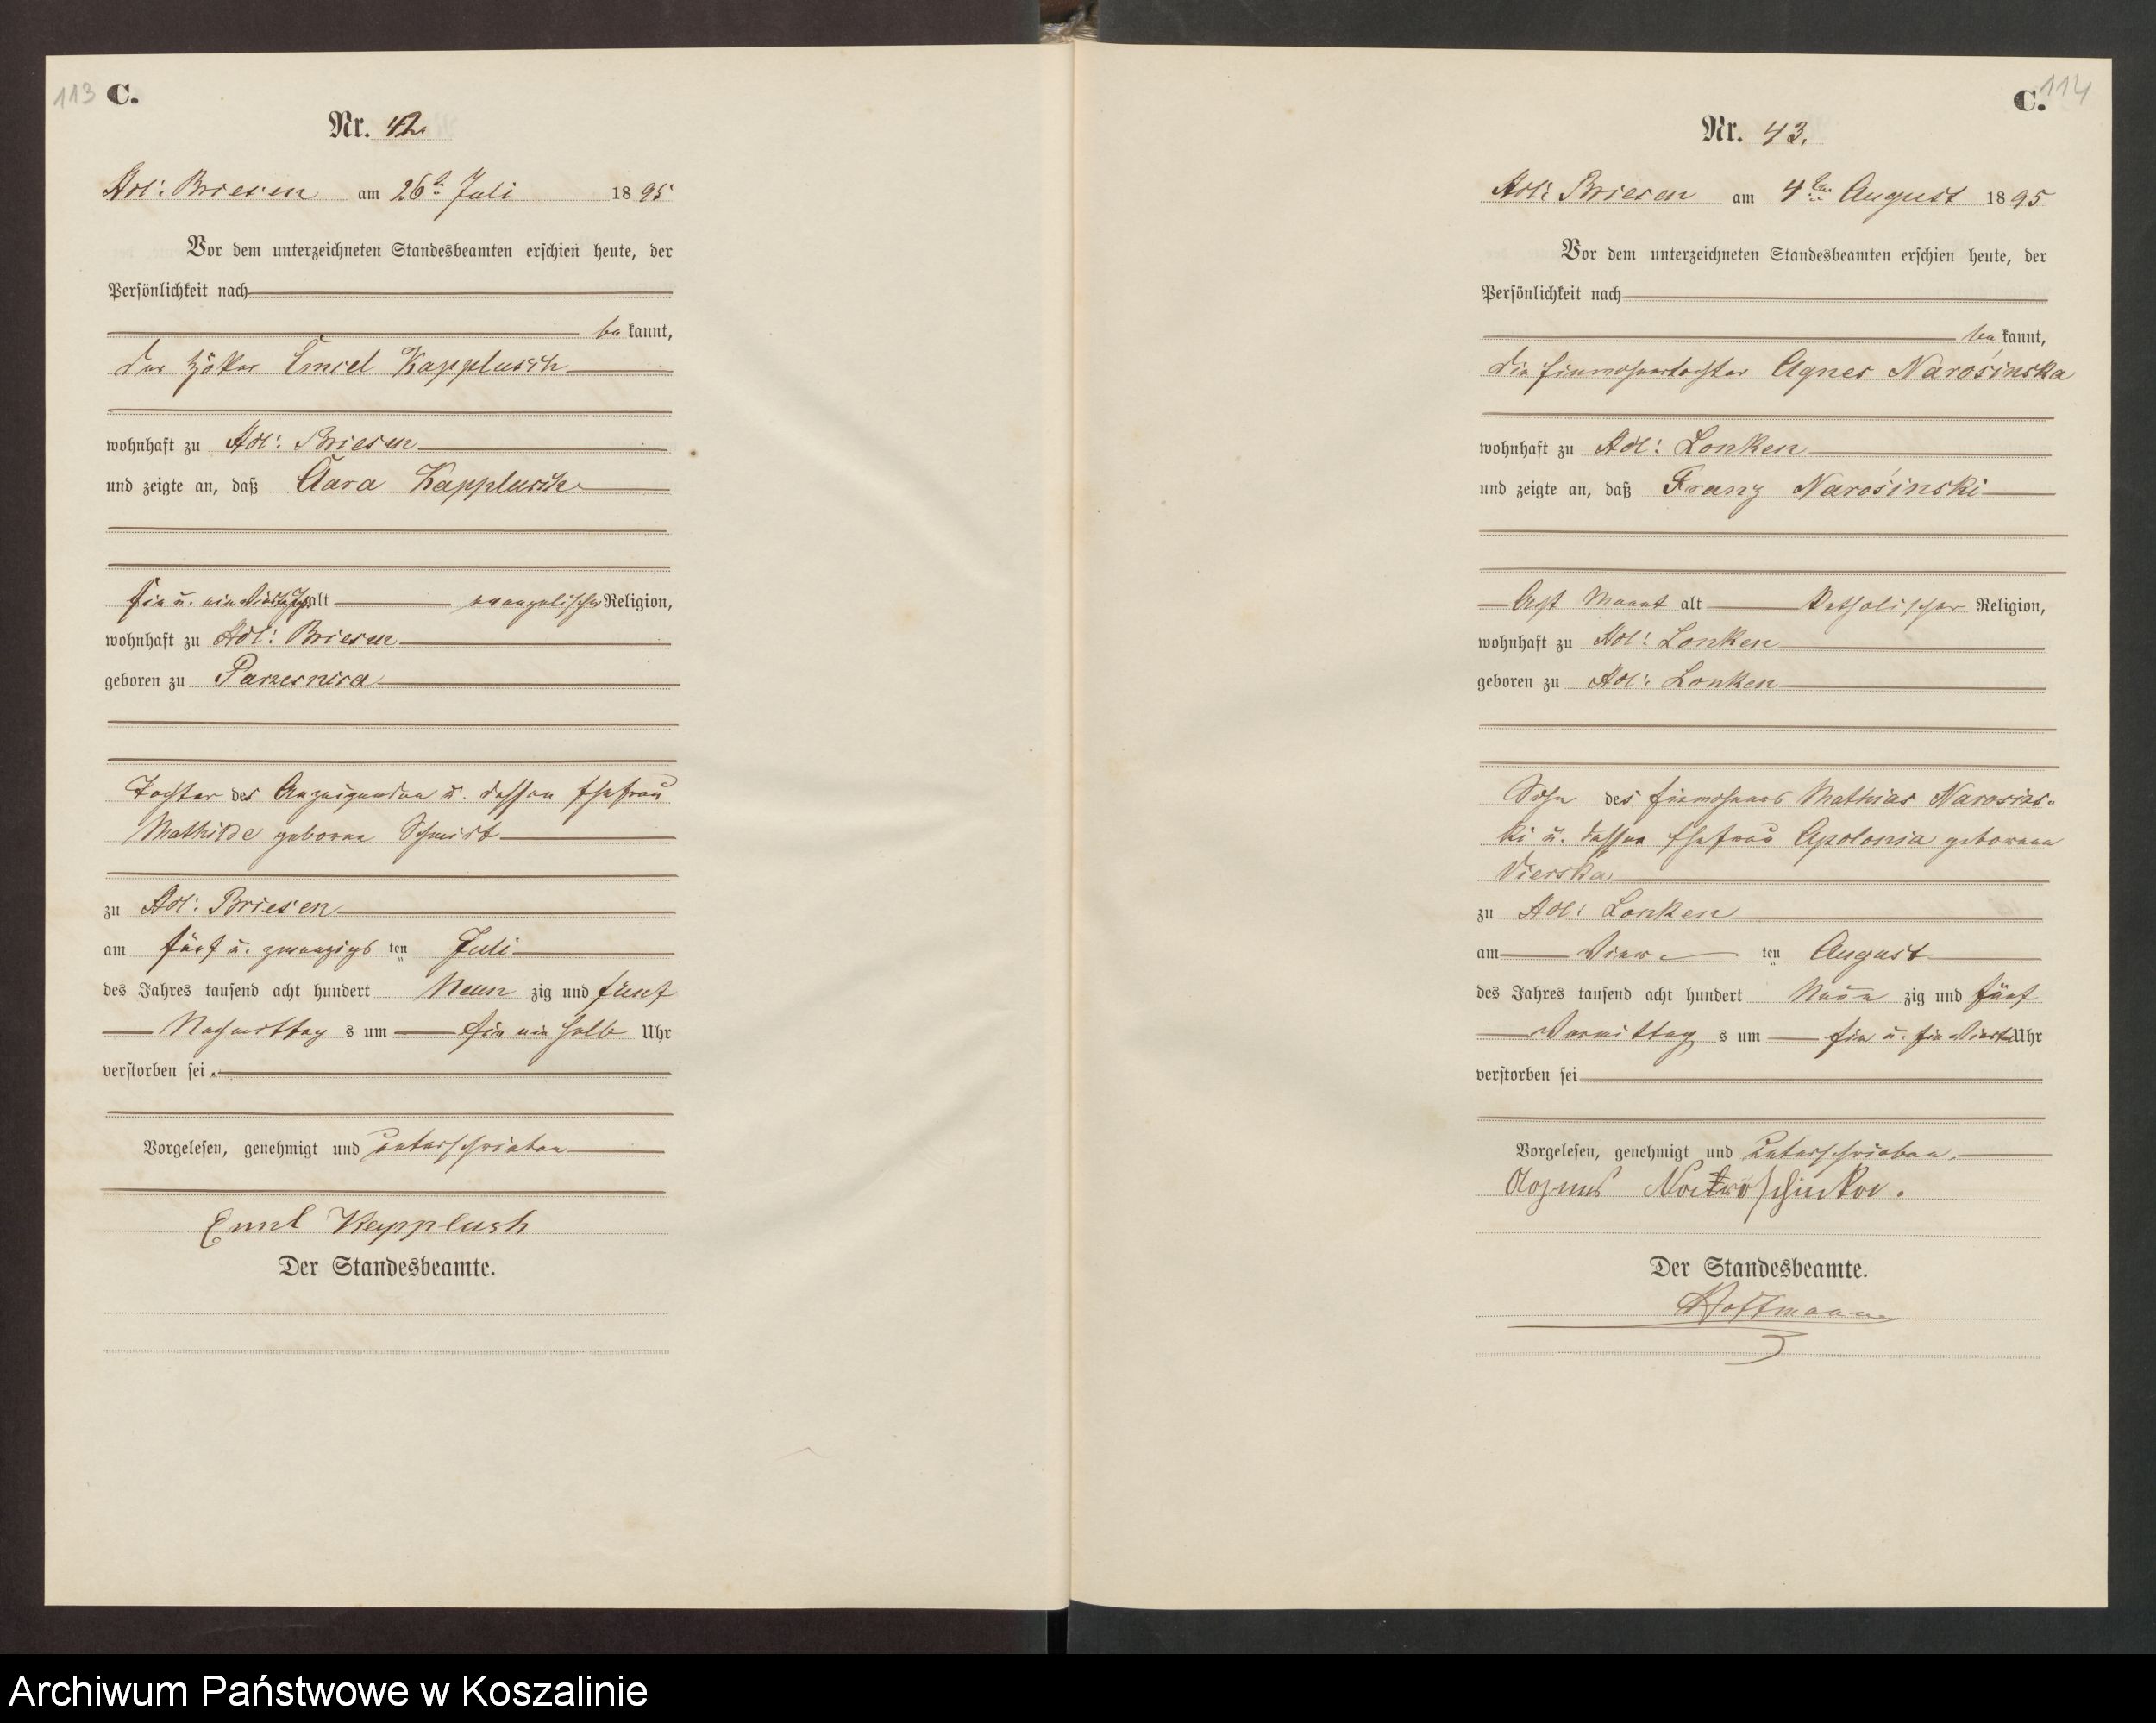 113 C.
Nr. 42.
Adl: Briesen am 26t Juli 1895
Vor dem unterzeichneten Standesbeamten erschien heute, der
Persönlichkeit nach
be kannt,
der Höker Emiel Kapplusch
wohnhaft zu Adl: Briesen
und zeigte an, daß Clara Kapplusch
Ein u. ein Viertel Jahr alt evangelischer Religion,
wohnhaft zu Adl: Briesen
geboren zu Parzesnica
Tochter des Anzeigenden u. dessen Ehefrau
Mathilde geborne Schmidt
zu Adl: Briesen
am fünf u. zwanzigs ten Juli
des Jahres tausend acht hundert Neun zig und fünf
Nachmittag s um Ein ein halb Uhr
verstorben sei.
Vorgelesen, genehmigt und unterschrieben
Emil Kapplush
Der Standesbeamte.
C. 114
Nr. 43.
Adl: Briesen am 4ten August 1895
Vor dem unterzeichneten Standesbeamten erschien heute, der
Persönlichkeit nach
be kannt,
die Einwohnertochter Agnes Narosinska
wohnhaft zu Adl: Lonken
und zeigte an, daß Franz Narosinski
Acht Monat alt katholischer Religion,
wohnhaft zu Adl: Lonken
geboren zu Adl: Lonken
Sohn des Einwohners Mathias Narosins-
ki u. dessen Ehefrau Apolonia geborenen
Vierska
zu Adl: Lonken
am Vier ten August
des Jahres tausend acht hundert Neun zig und fünf
Vormittag s um Ein u. Ein Viertel Uhr
verstorben sei
Vorgelesen, genehmigt und unterschrieben.
Der Standesbeamte.
Hoffmann
Archiwum Państwowe w Koszalinie